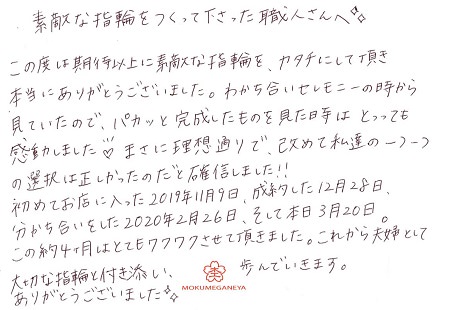 素敵な指輪をつくって下さった職人さんへ✨
この度は期待以上に素敵な指輪を、カタチにして頂き
本当にありがとうございました。わかち合いセレモニーの時から
見ていたので、パカッと完成したものを見た時は とってっても
感動しました♡ まさに理想通りで、改めて私達の一つ一つ
の選択は正しかったのだと確信しました!!
初めてお店に入った2019年11月9日、成約した12月28日、
分かち合いをした2020年2月26日、そして本日3月20日。
この約4ヶ月はとてもワクワクさせて頂きました。これから夫婦として
大切な指輪と付き添い、歩んでいきます。
ありがとうございました✨
MOKUMEGANEYA